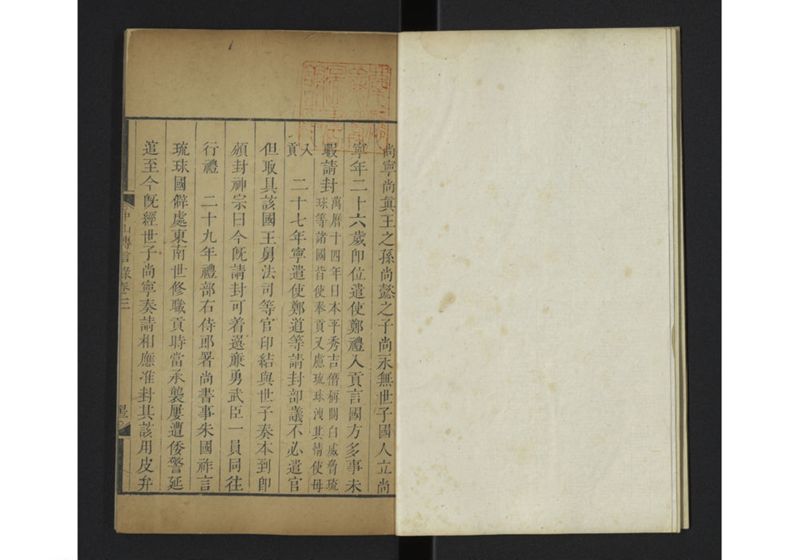 尚寧尚眞王之孫尚懿之子尚永無世子國人立尚
寧年二十六歲卽位遣使鄭禮入貢言國方多事未
暇請封萬曆十四年日本平秀吉僭稱關白威脅琉
球等諸國皆使奉貢又慮琉球洩其情使毋
入貢 二十七年寧遣使鄭道等請封部議不必遣官
但取具該國王舅法司等官印結與世子奏本到卽
頒封神宗曰今旣請封可着選廉勇武臣一員同往
行禮 二十九年禮部右侍郎署尚書事朱國祚言
琉球國僻處東南世修職貢時當承襲屢遭倭警延
至今旣經世子尚寧奏請相應准封其該用皮弁
中山傳信錄卷三